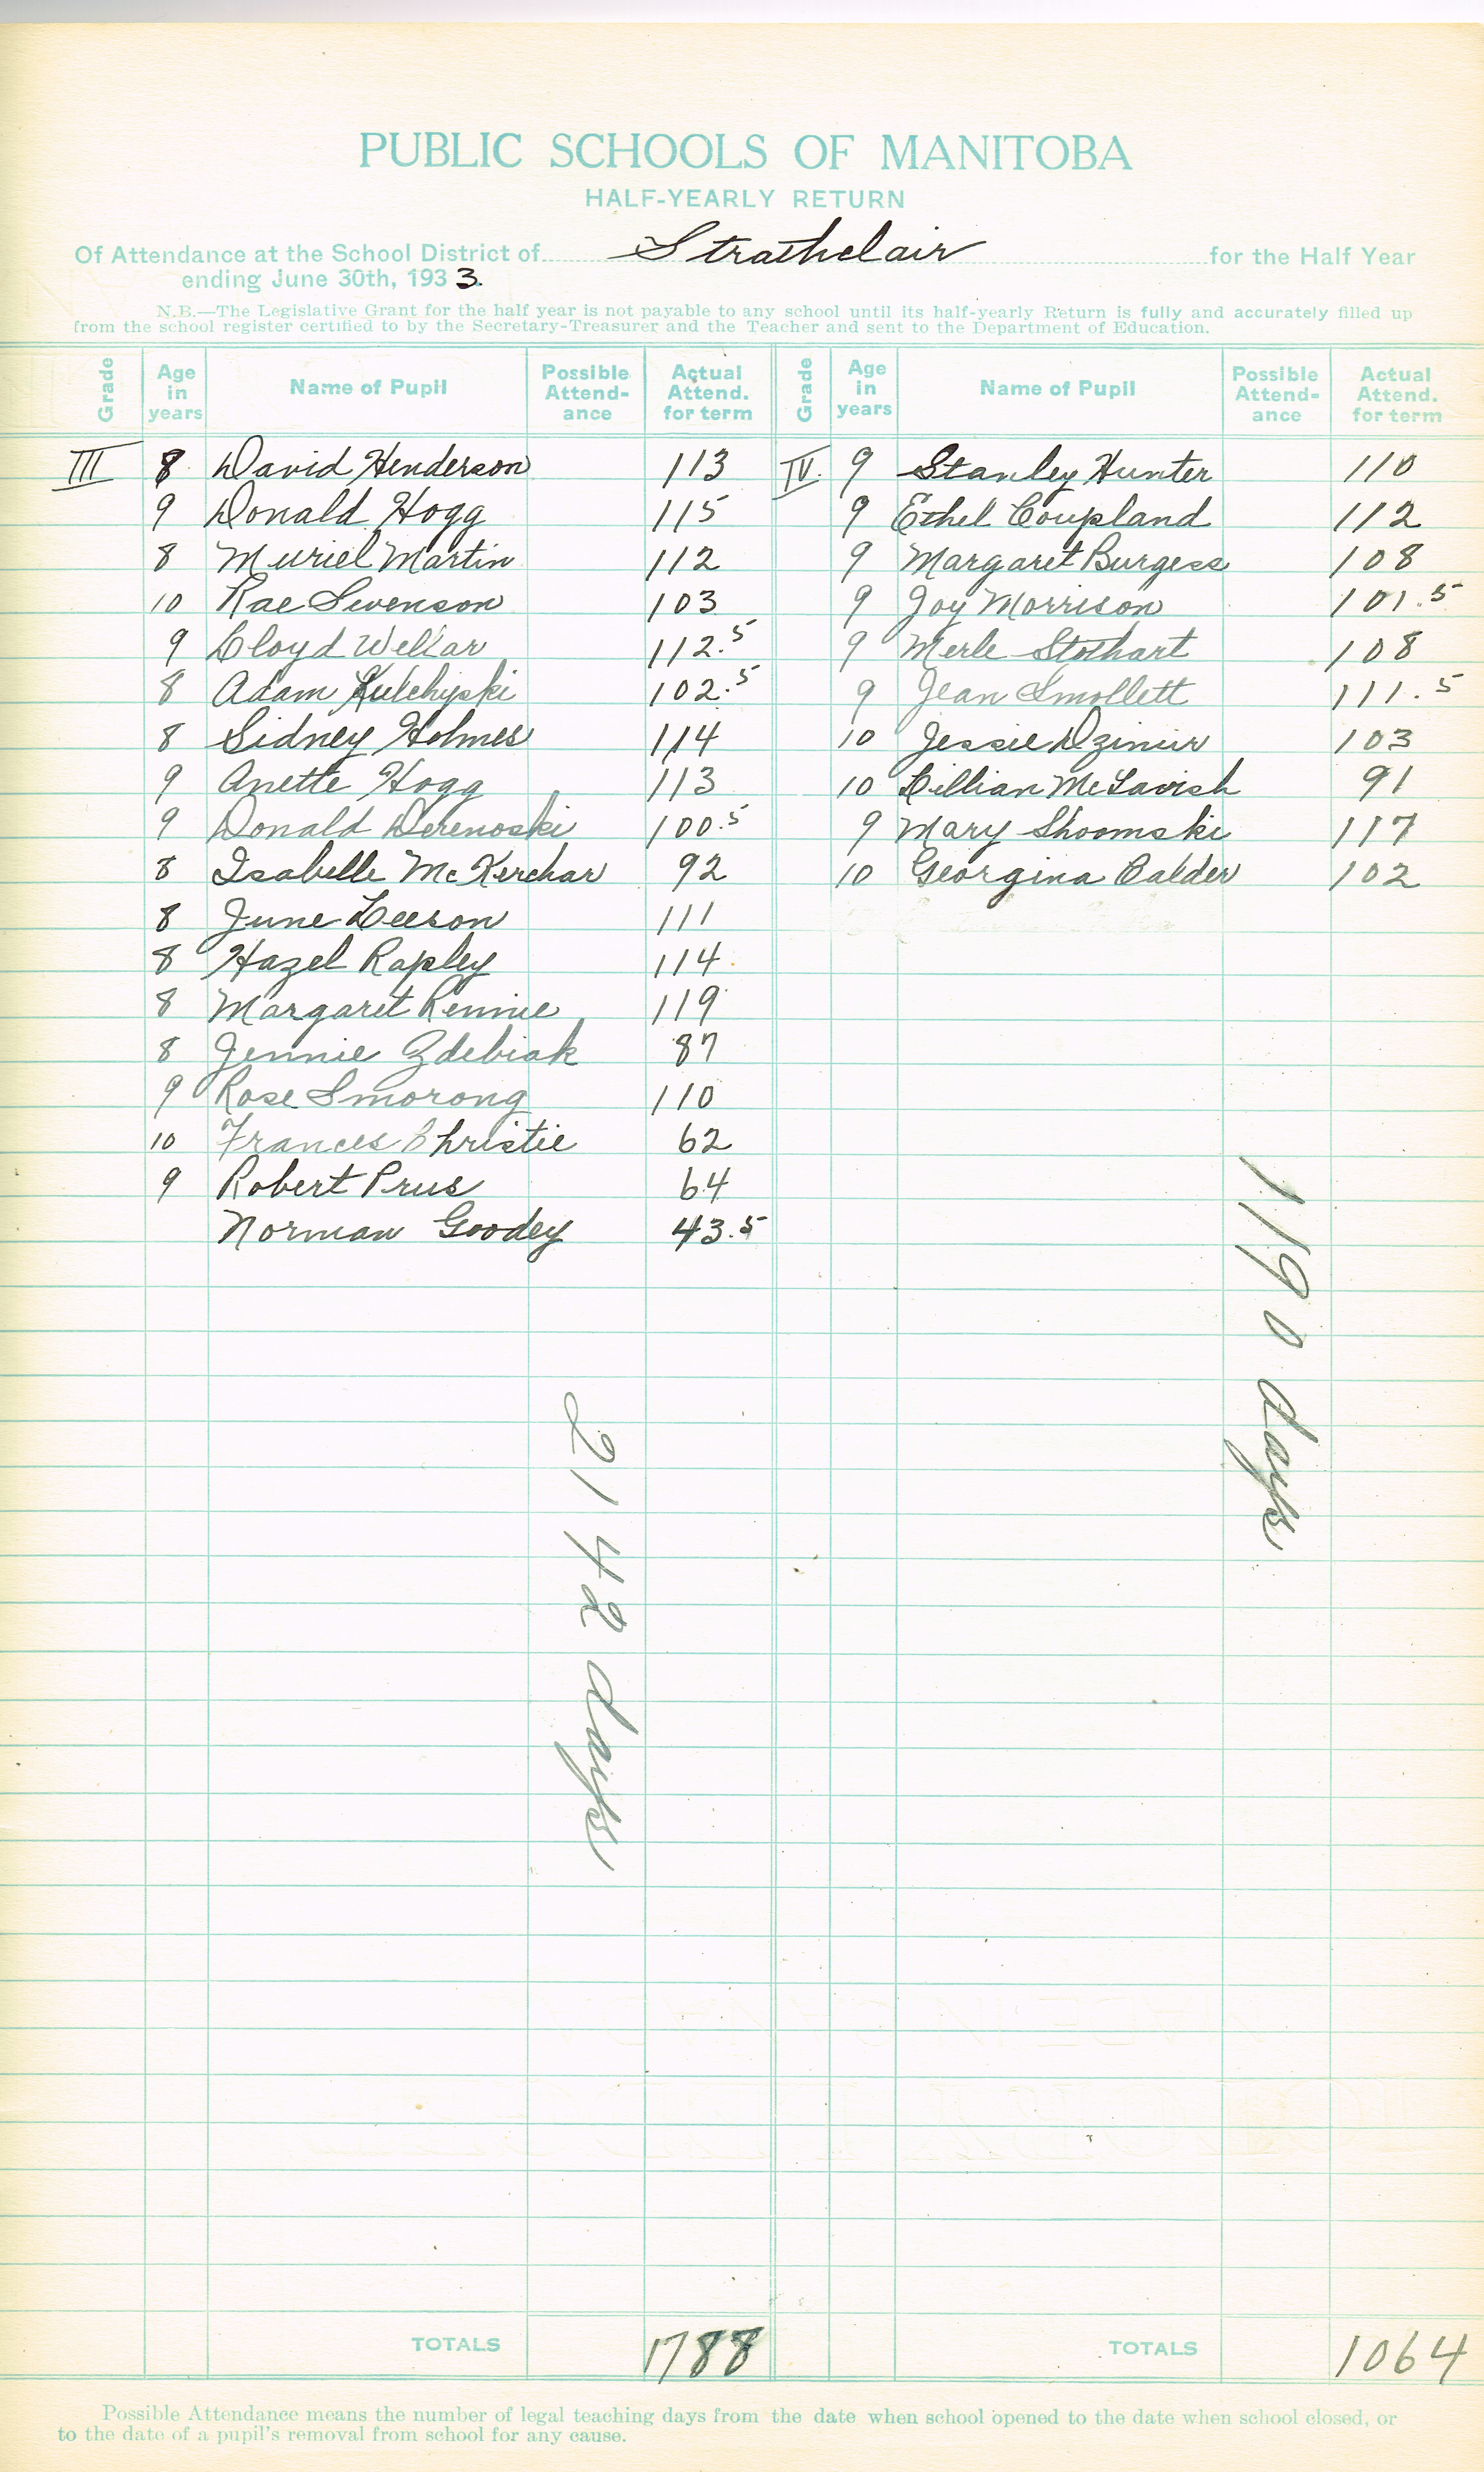 PUBLIC SCHOOLS OF MANITOBA
HALF-YEARLY RETURN
Of Attendance at the School District of Strathclair for the Half Year
ending June 30th, 1933.
N.B.—The Legislative Grant for the half year is not payable to any school until its half-yearly Return is fully and accurately filled up
from the school register certified to by the Secretary-Treasurer and the Teacher and sent to the Department of Education.
Grade Age in years Name of Pupil Possible Attend-ance Actual Attend. for term
III 8 David Henderson 113
9 Donald Hogg 115
8 Muriel Martin 112
10 Rae Swenson 103
9 Lloyd Wellar 112.5
8 Adam Kulchyski 102.5
8 Sidney Holmes 114
9 Anette Hogg 113
9 Donald Derenoski 100.5
8 Isabelle McKerchar 92
8 June Leeson 111
8 Hazel Rapley 114
8 Margaret Rennie 119
8 Jennie Zdebiak 87
9 Rose Smorong 110
10 Frances Christie 62
9 Robert Prus 64
Norman Goodey 43.5
2142 days
TOTALS 1788
Grade Age in years Name of Pupil Possible Attend-ance Actual Attend. for term
IV. 9 Stanley Hunter 110
9 Ethel Coupland 112
9 Margaret Burgess 108
9 Joy Morrison 101.5
9 Merle Stothart 108
9 Jean Smollett 111.5
10 Jessie Dzimir 103
10 Lillian McTavish 91
9 Mary Shoomski 117
10 Georgina Calder 102
1190 days
TOTALS 1064
Possible Attendance means the number of legal teaching days from the date when school opened to the date when school closed, or
to the date of a pupil's removal from school for any cause.